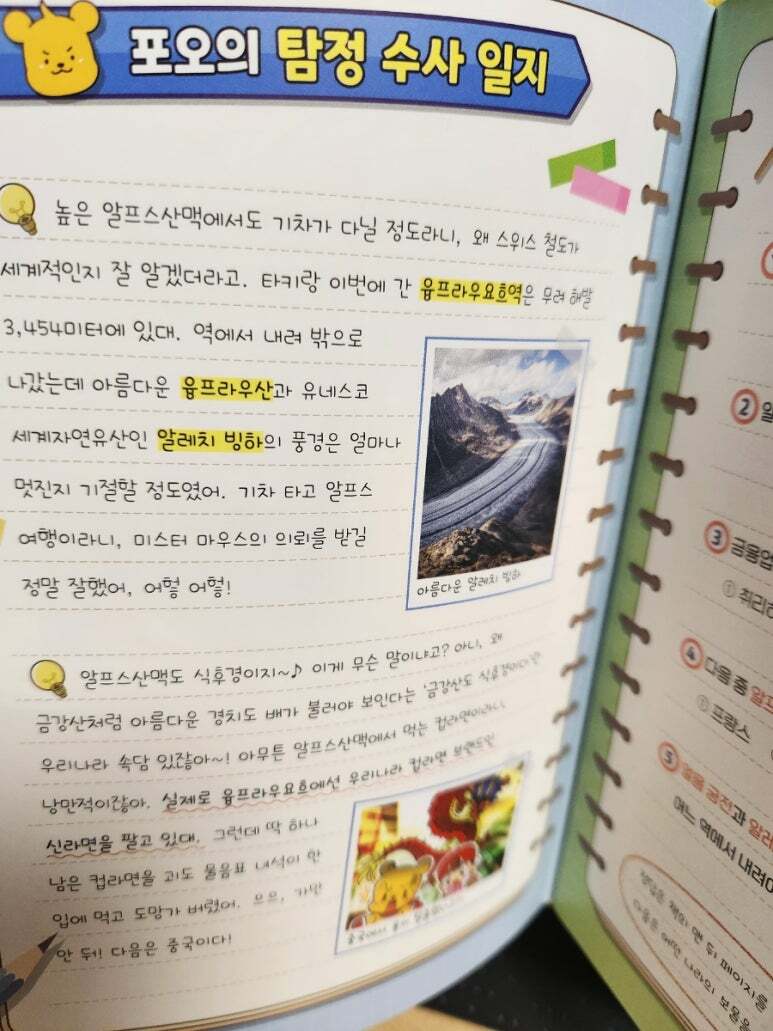 포오의 탐정 수사 일지
높은 알프스산맥에서도 기차가 다닐 정도라니, 왜 스위스 철도가
세계적인지 잘 알겠더라고. 타키랑 이번에 간 융프라우요흐역은 무려 해발
3,454미터에 있대. 역에서 내려 밖으로
나갔는데 아름다운 융프라우산과 유네스코
세계자연유산인 알레치 빙하의 풍경은 얼마나
멋진지 기절할 정도였어. 기차 타고 알프스
여행이라니, 미스터 마우스의 의뢰를 받길
정말 잘했어, 어헣 어헣!
아름다운 알레치 빙하
알프스산맥도 식후경이지~♪ 이게 무슨 말이냐고? 아니, 왜
금강산처럼 아름다운 경치도 배가 불러야 보인다는 '금강산도 식후경이다'란
우리나라 속담 있잖아~! 아무튼 알프스산맥에서 먹는 컵라면이라니,
낭만적이잖아. 실제로 융프라우요흐에선 우리나라 컵라면 브랜드인
신라면을 팔고 있대. 그런데 딱 하나
남은 컵라면을 괴도 물음표 녀석이 한
입에 먹고 도망가 버렸어. 으으, 가만
안 둬! 다음은 중국이다!
②
③ 금융업
① 취리
④ 다음 중 알프
① 프랑스
⑤
어느 역에서 내려야
정답은 책의 맨 뒤 페이지를